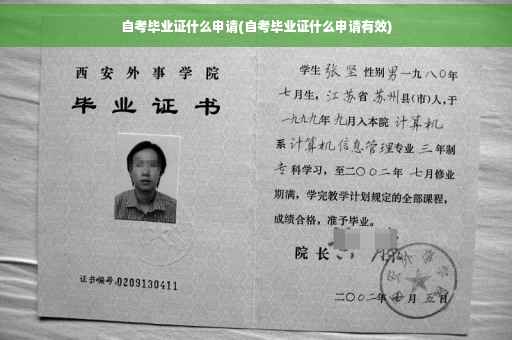 自考毕业证什么申请(自考毕业证什么申请有效)
西安外事学院
毕业证书
证书编号:0209130411
学生 张坚 性别 男 一九八〇年
七月生，江苏省 苏州县(市)人，于
一九九九年 九月入本院 计算机
系 计算机信息管理专业 三 年制
专科学习，至二〇〇二年 七月修业
期满，学完教学计划规定的全部课程，
成绩合格，准予毕业。
院长
二〇〇二年 月 五日